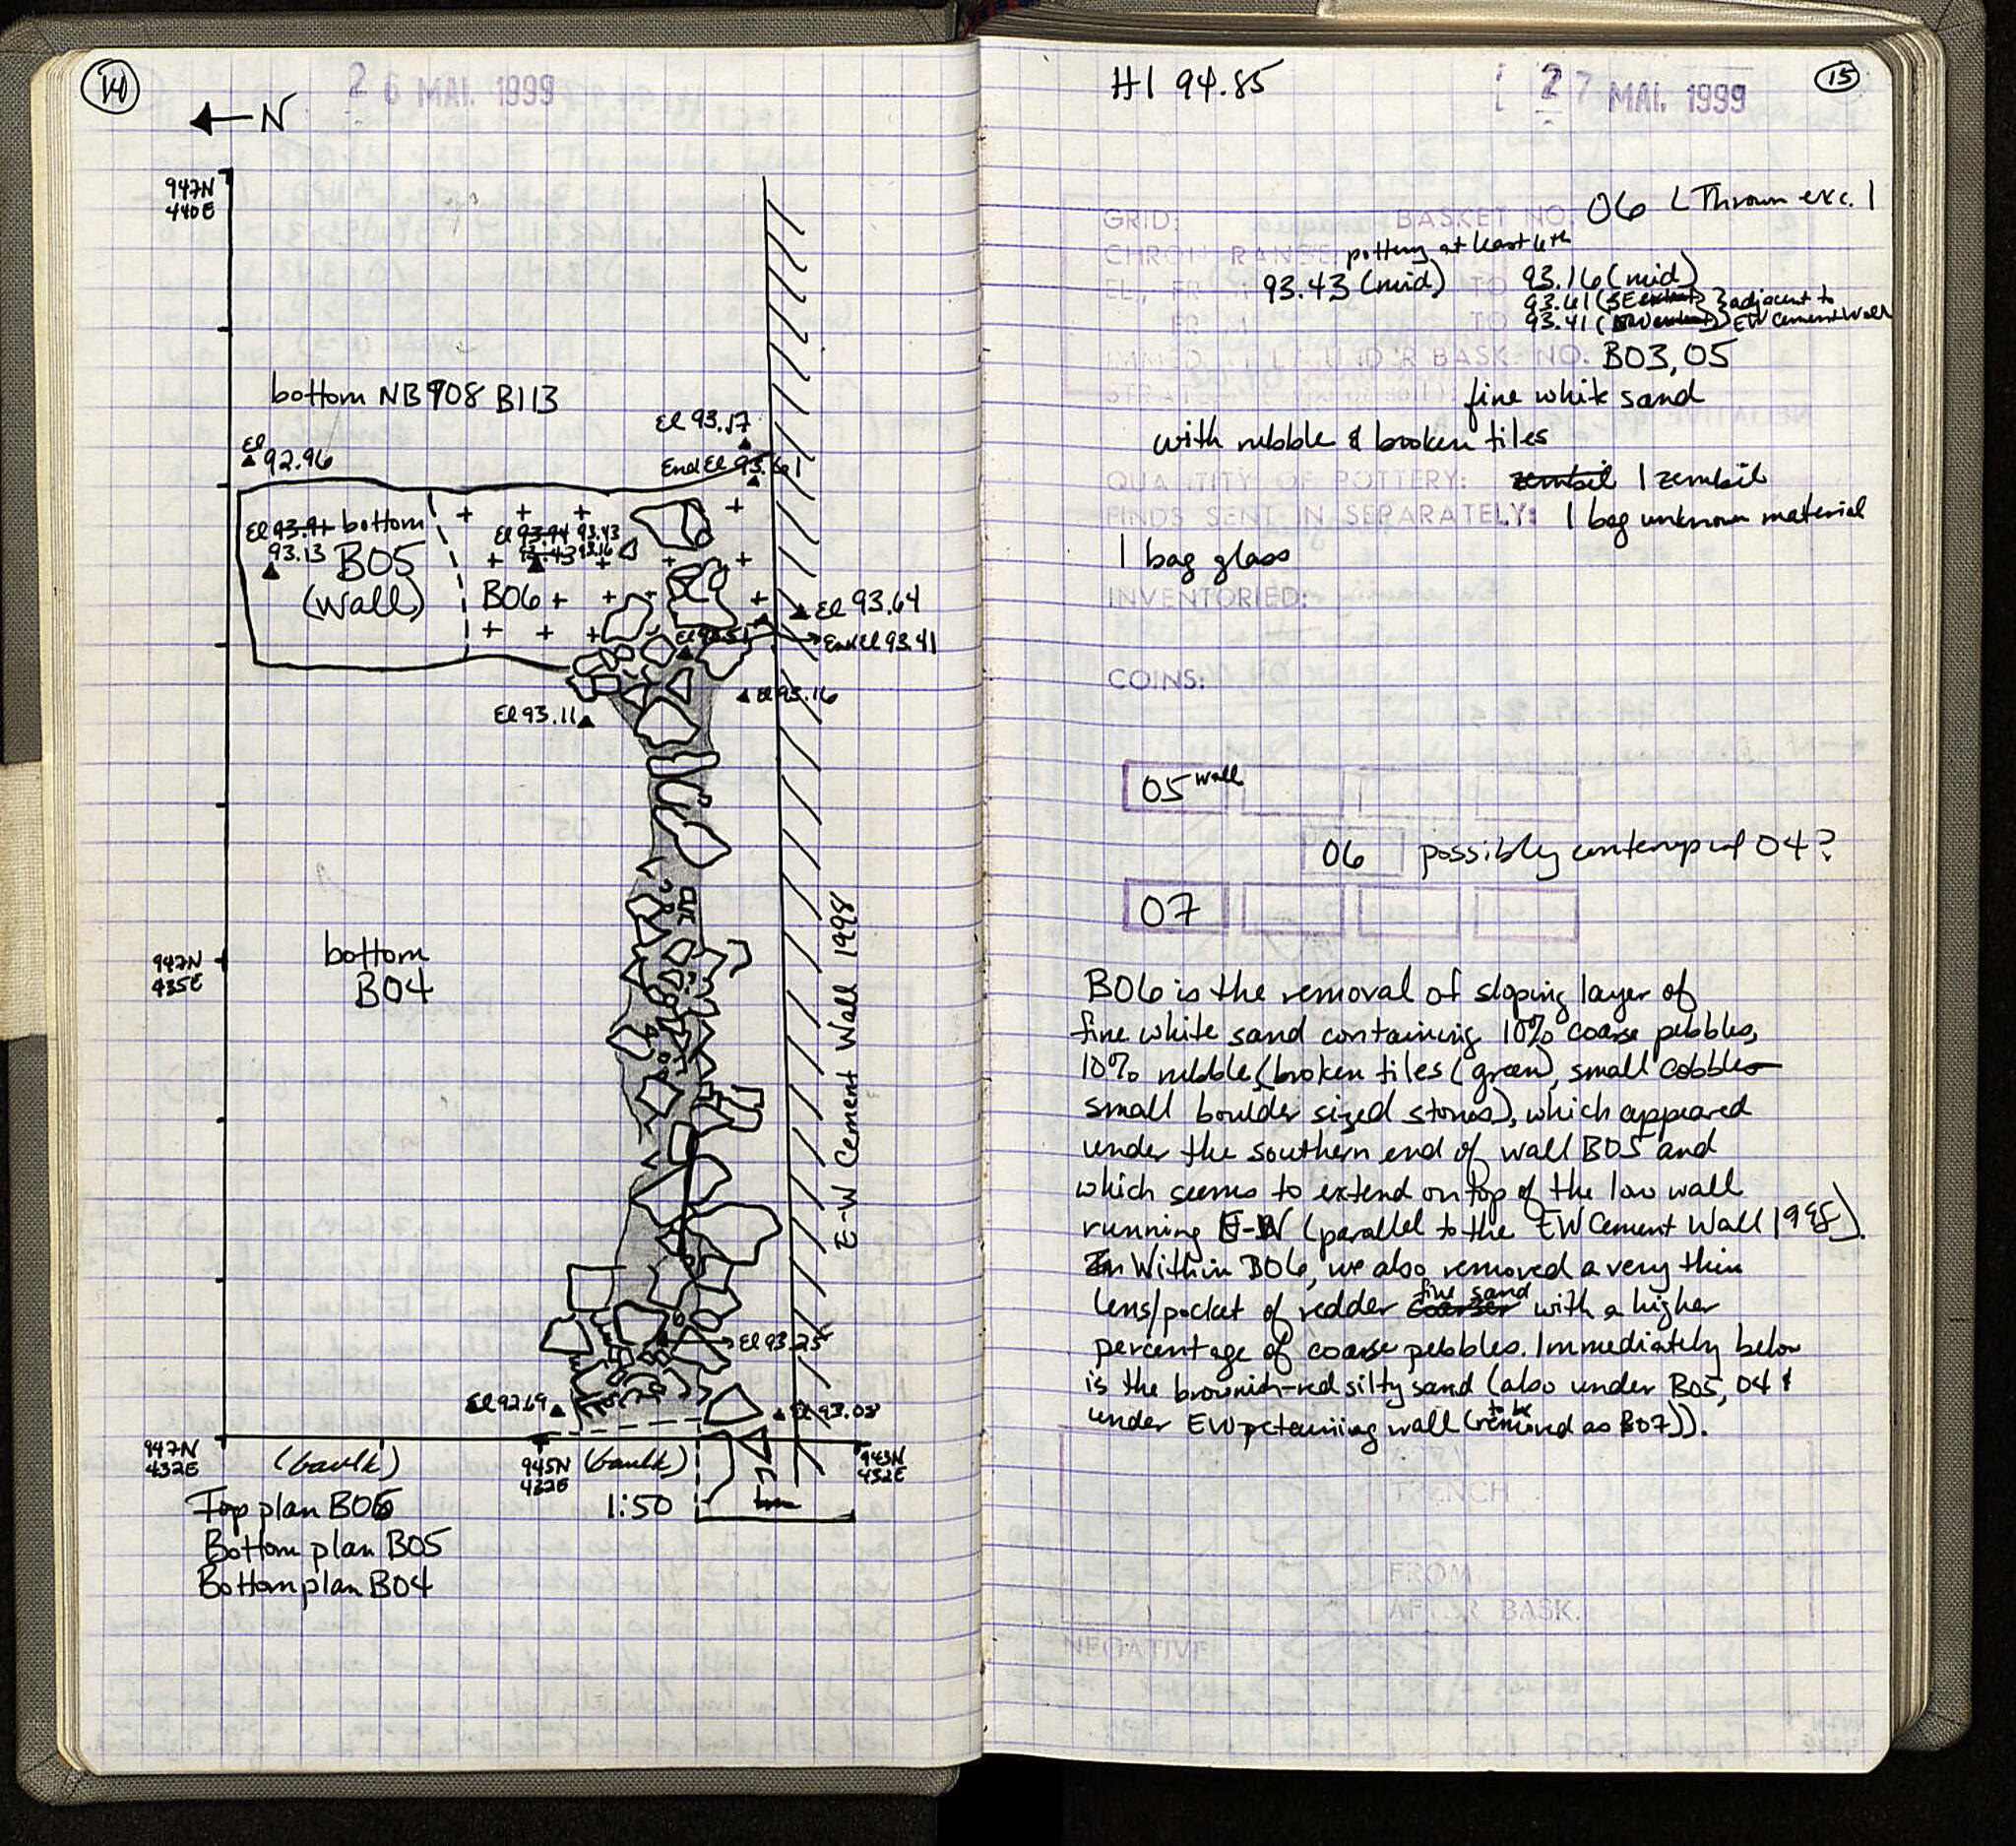 14
26 MAI. 1999
N
947N
440E
bottom NB908 B113
El 93.17
El
92.96
End El 93.61
El 93.91 bottom
93.13 B05
(wall)
El 93.94 93.43
93.43 93.16
B06
El 93.64
End El 93.41
El 93.16
El 93.11
E-W Cement Wall 1998
947N
435E
bottom
B04
El 93.25
El 92.69
El 93.08
947N
432E
(baulk)
945N
432E
(baulk)
943N
432E
Top plan B06
1:50
Bottom plan B05
Bottom plan B04
HI 94.85
27 MAI. 1999
15
GRID:
BASKET NO. 06 L Thrown exc. 1
CHRON RANGE pottery at least 6th
EL., FR 93.43 (mid) TO 93.16 (mid)
93.61 (SE) } adjacent to
TO 93.41 EW Cement Wall
UNDER BASK. NO. B03, 05
fine white sand
with rubble & broken tiles
QUANTITY OF POTTERY: zembil 1 zembil
FINDS SENT IN SEPARATELY: 1 bag unknown material
1 bag glass
INVENTORIED:
COINS:
05 wall
06 possibly contemp w/ 04?
07
B06 is the removal of sloping layer of
fine white sand containing 10% coarse pebbles,
10% rubble (broken tiles (green), small cobble
small boulder sized stones), which appeared
under the southern end of wall B05 and
which seems to extend on top of the low wall
running E-W (parallel to the EW Cement Wall 1998).
In Within B06, we also removed a very thin
lens/pocket of redder coarser fine sand with a higher
percentage of coarse pebbles. Immediately below
is the brownish-red silty sand (also under B05, 04 &
under EW retaining wall (to be removed as B07)).
TRENCH
FROM
AFTER BASK.
NEGATIVE